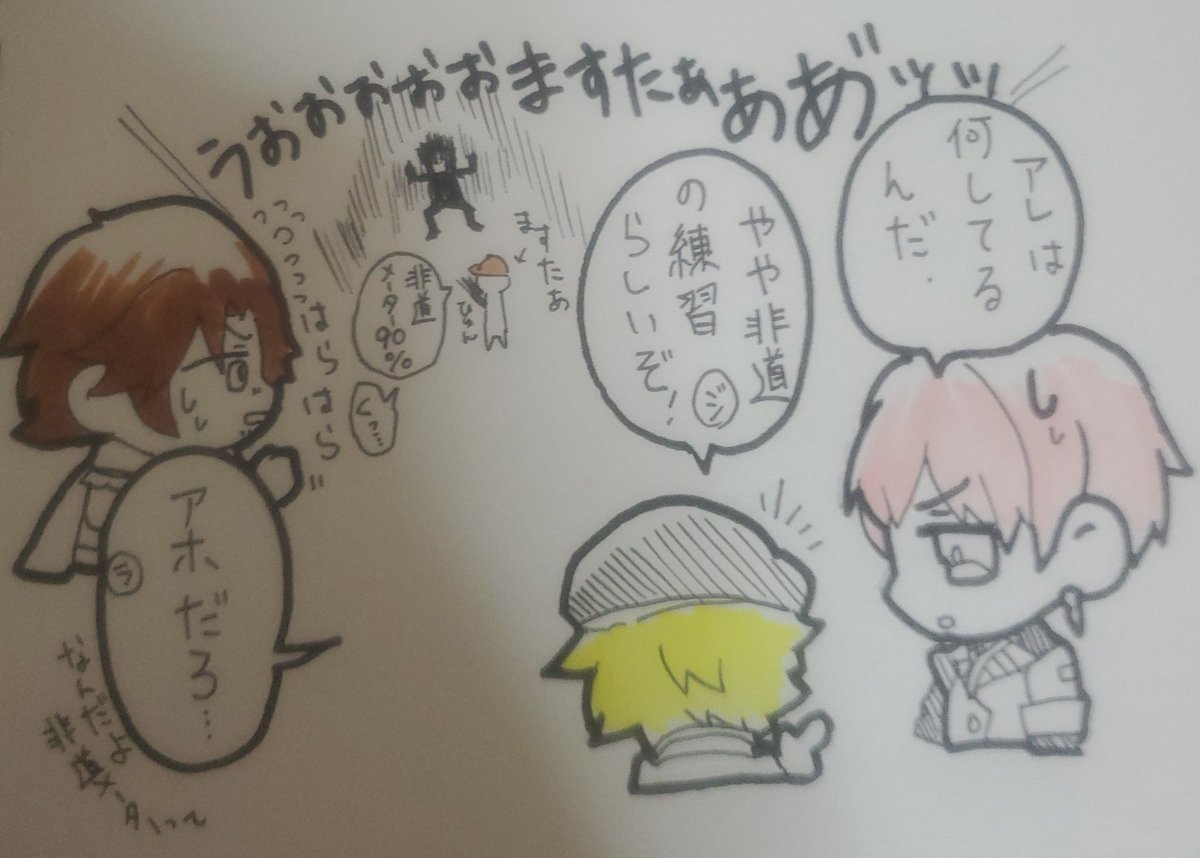 うおおおおおますたぁぁあ゛ッッ
アレは
何してる
んだ.
やや非道
の練習
らしいぞ!
ジン
ますたあ
ひゅん
非道
メーター90%
くっ…
っっっっっはらはら
アホだろ…
ラ
なんだよ
非道メーターって